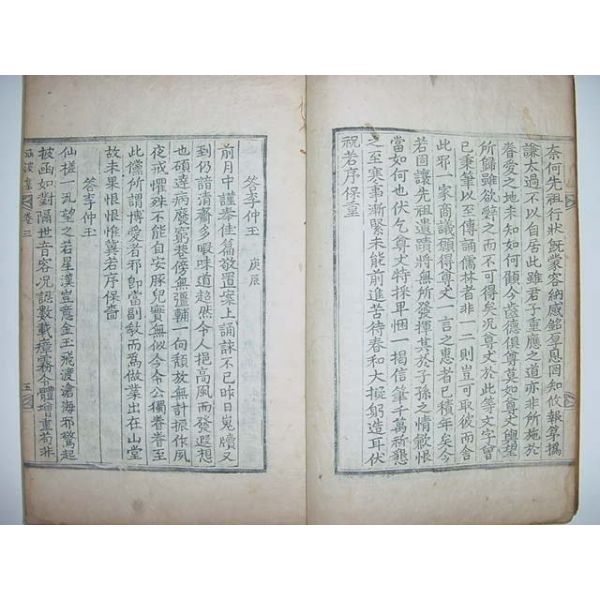 奈何先祖行狀旣蒙容納感銘厚恩罔知攸報尊撝
謙太過不以自居此雖君子重應之道亦非所施於
眷愛之地未知如何顧今齒德俱尊莫如尊丈輿望
所歸雖欲辭之而不可得矣况尊丈於此等文字曾
已秉筆以至傳誦儒林者非一二則豈可取彼而舍
此邪一家商議願得尊丈一言之惠者已積年矣今
若固讓先祖遺蹟將無所發揮其於子孫之情缺恨
當如何也伏乞尊丈特採卑悃一揭信筆千萬祈懇
之至寒事漸緊未能前進苦待春和大擬躬造耳伏
祝若序保重
答李仲玉 庚辰
前月中謹奉佳篇敬置案上誦詠不已昨日嵬牘又
到仍諳清齋多暇味道超然令人挹高風而發遐想
也碩達病麼窮巷傍無彊輔一向頹放無計振作夙
夜戒懼殊不能自安豚兒實無似今令公獨眷眷至
此儒所謂博愛者邪卽當副敎而爲做業出在山堂
故未果恨恨惟冀若序保嗇
答李仲玉
仙槎一流望之若星漢豈意金玉飛渡滄海邪驚起
披函如對隔世音容况諗數載瘴霧令體增重苟非
卷三
五